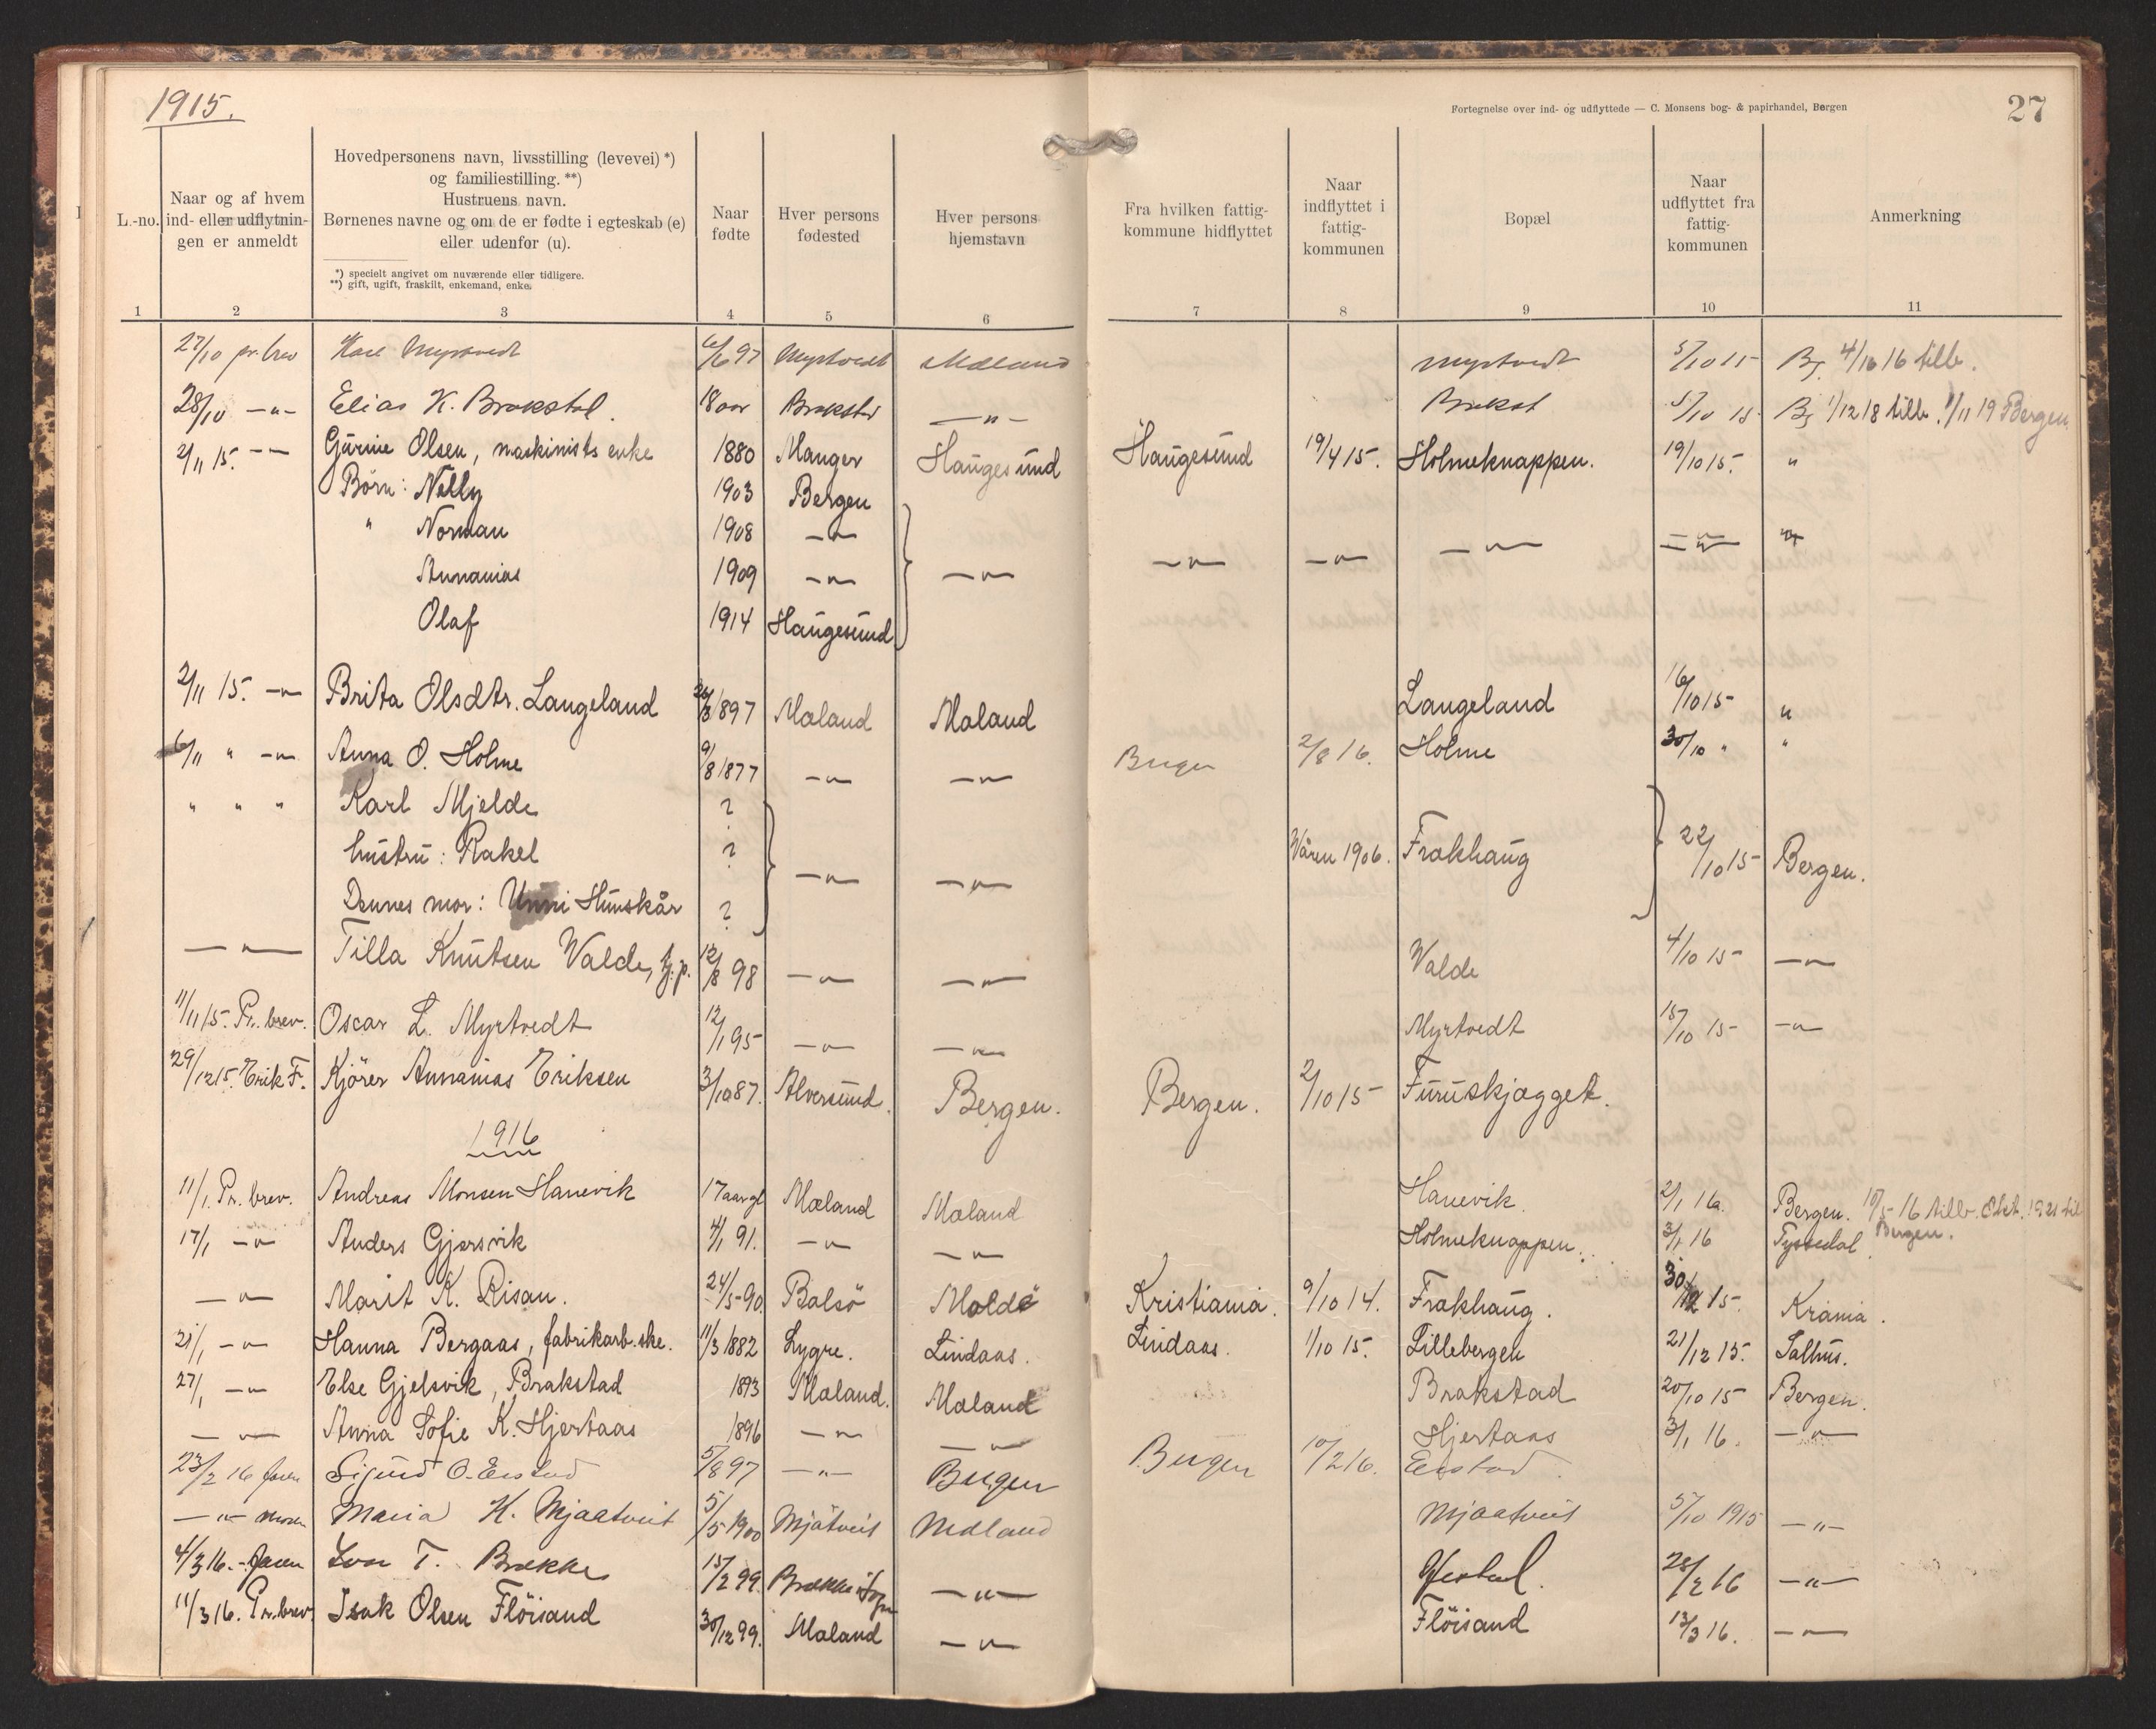 1915.
Fortegnelse over ind- og udflyttede — C. Monsens bog- & papirhandel, Bergen
27
L.-no.
Naar og af hvem ind- eller udflytnin- gen er anmeldt
Hovedpersonens navn, livsstilling (levevei) *)
og familiestilling. **)
Hustruens navn.
Børnenes navne og om de er fødte i egteskab (e)
eller udenfor (u).
*) specielt angivet om nuværende eller tidligere.
**) gift, ugift, fraskilt, enkemand, enke.
Naar fødte
Hver persons fødested
Hver persons hjemstavn
Fra hvilken fattig- kommune hidflyttet
Naar indflyttet i fattig- kommunen
Bopæl
Naar udflyttet fra fattig- kommunen
Anmerkning
1 2 3 4 5 6 7 8 9 10 11
27/10 pr. brev Myrtvedt 6/6 97 Myrtvedt Mæland Myrtvedt 5/10 15 4/10 16 tilb.
28/10 —"— Elias K. Brakstad. 18 aar Brakstad —"— 5/10 15 1/12 18 tilb. 1/11 19 Bergen
2/11 15. —"— Gurine Olsen, maskinists enke 1880 Manger Haugesund Haugesund 19/4 15. Holmeknappen. 19/10 15. "
Børn: Nelly 1903 Bergen
" Norman 1908 —"— —"— —"— "
Annanias 1909 —"— —"— —"— —"—
Olaf 1914 Haugesund
2/11 15. —"— Brita Olsdtr. Langeland 1897 Mæland Mæland Langeland 16/10 15 "
6/11 " —"— Anna O. Holme 9/8 1877 —"— —"— Bergen 2/8 16. Holme 30/10 " "
" " " Karl Mjelde ?
hustru: Rakel ? —"— —"— Våren 1906. Frækhaug 22/10 15 Bergen.
Dennes mor: Unni Hunskår ?
—"— Tilla Knutsen Valde, tj.p. 12/8 98 —"— —"— Valde 4/10 15 —"—
11/11 15. Pr. brev. Oscar L. Myrtvedt 12/1 95 —"— —"— Myrtvedt 15/10 15 —"—
29/12 15. Erik F. Kjører Annanias Eriksen 3/10 87. Alversund. Bergen. Bergen. 2/10 15 Furuskjægget.
1916
11/1. Pr. brev. Andreas Monsen Hanevik 17 aar gl Mæland Mæland Hanevik. 2/1 16. Bergen. 10/5 16 tilb. Okt. 1921 til Bergen.
17/1 —"— Anders Gjersvik 4/1 91. —"— —"— Holmeknappen. 3/1 16 Tyssedal.
—"— Marit K. Risan. 24/5 90. Bolsö Molde Kristiania. 9/10 14. Frækhaug. 30/12 15. Krania.
21/1 —"— Hanna Bergaas, fabrikarb.ske. 11/3 1882 Lygre. Lindaas. Lindaas. 1/10 15. Lillebergen 21/12 15. Salhus.
27/1 —"— Else Gjelsvik, Brakstad 1893 Mæland. Mæland Brakstad 20/10 15 Bergen.
—"— Anna Sofie K. Hjertaas 1896 —"— —"— Hjertaas 3/1 16. —"—
23/2 16 faren Sigurd O. Eestad 5/8 97 —"— Bergen Bergen 10/2 16. Eestad.
—"— moren Maria K. Mjaatveit 5/5 1900 Mjåtveit Mæland Mjaatveit 5/10 1915 —"—
4/3 16. - faren T. Brække 15/2 99. Brække i Sogn —"— 28/2 16 —"—
11/3 16. Pr. brev. Isak Olsen Flöisand 30/12 99. Mæland —"— Flöisand 13/3 16. —"—